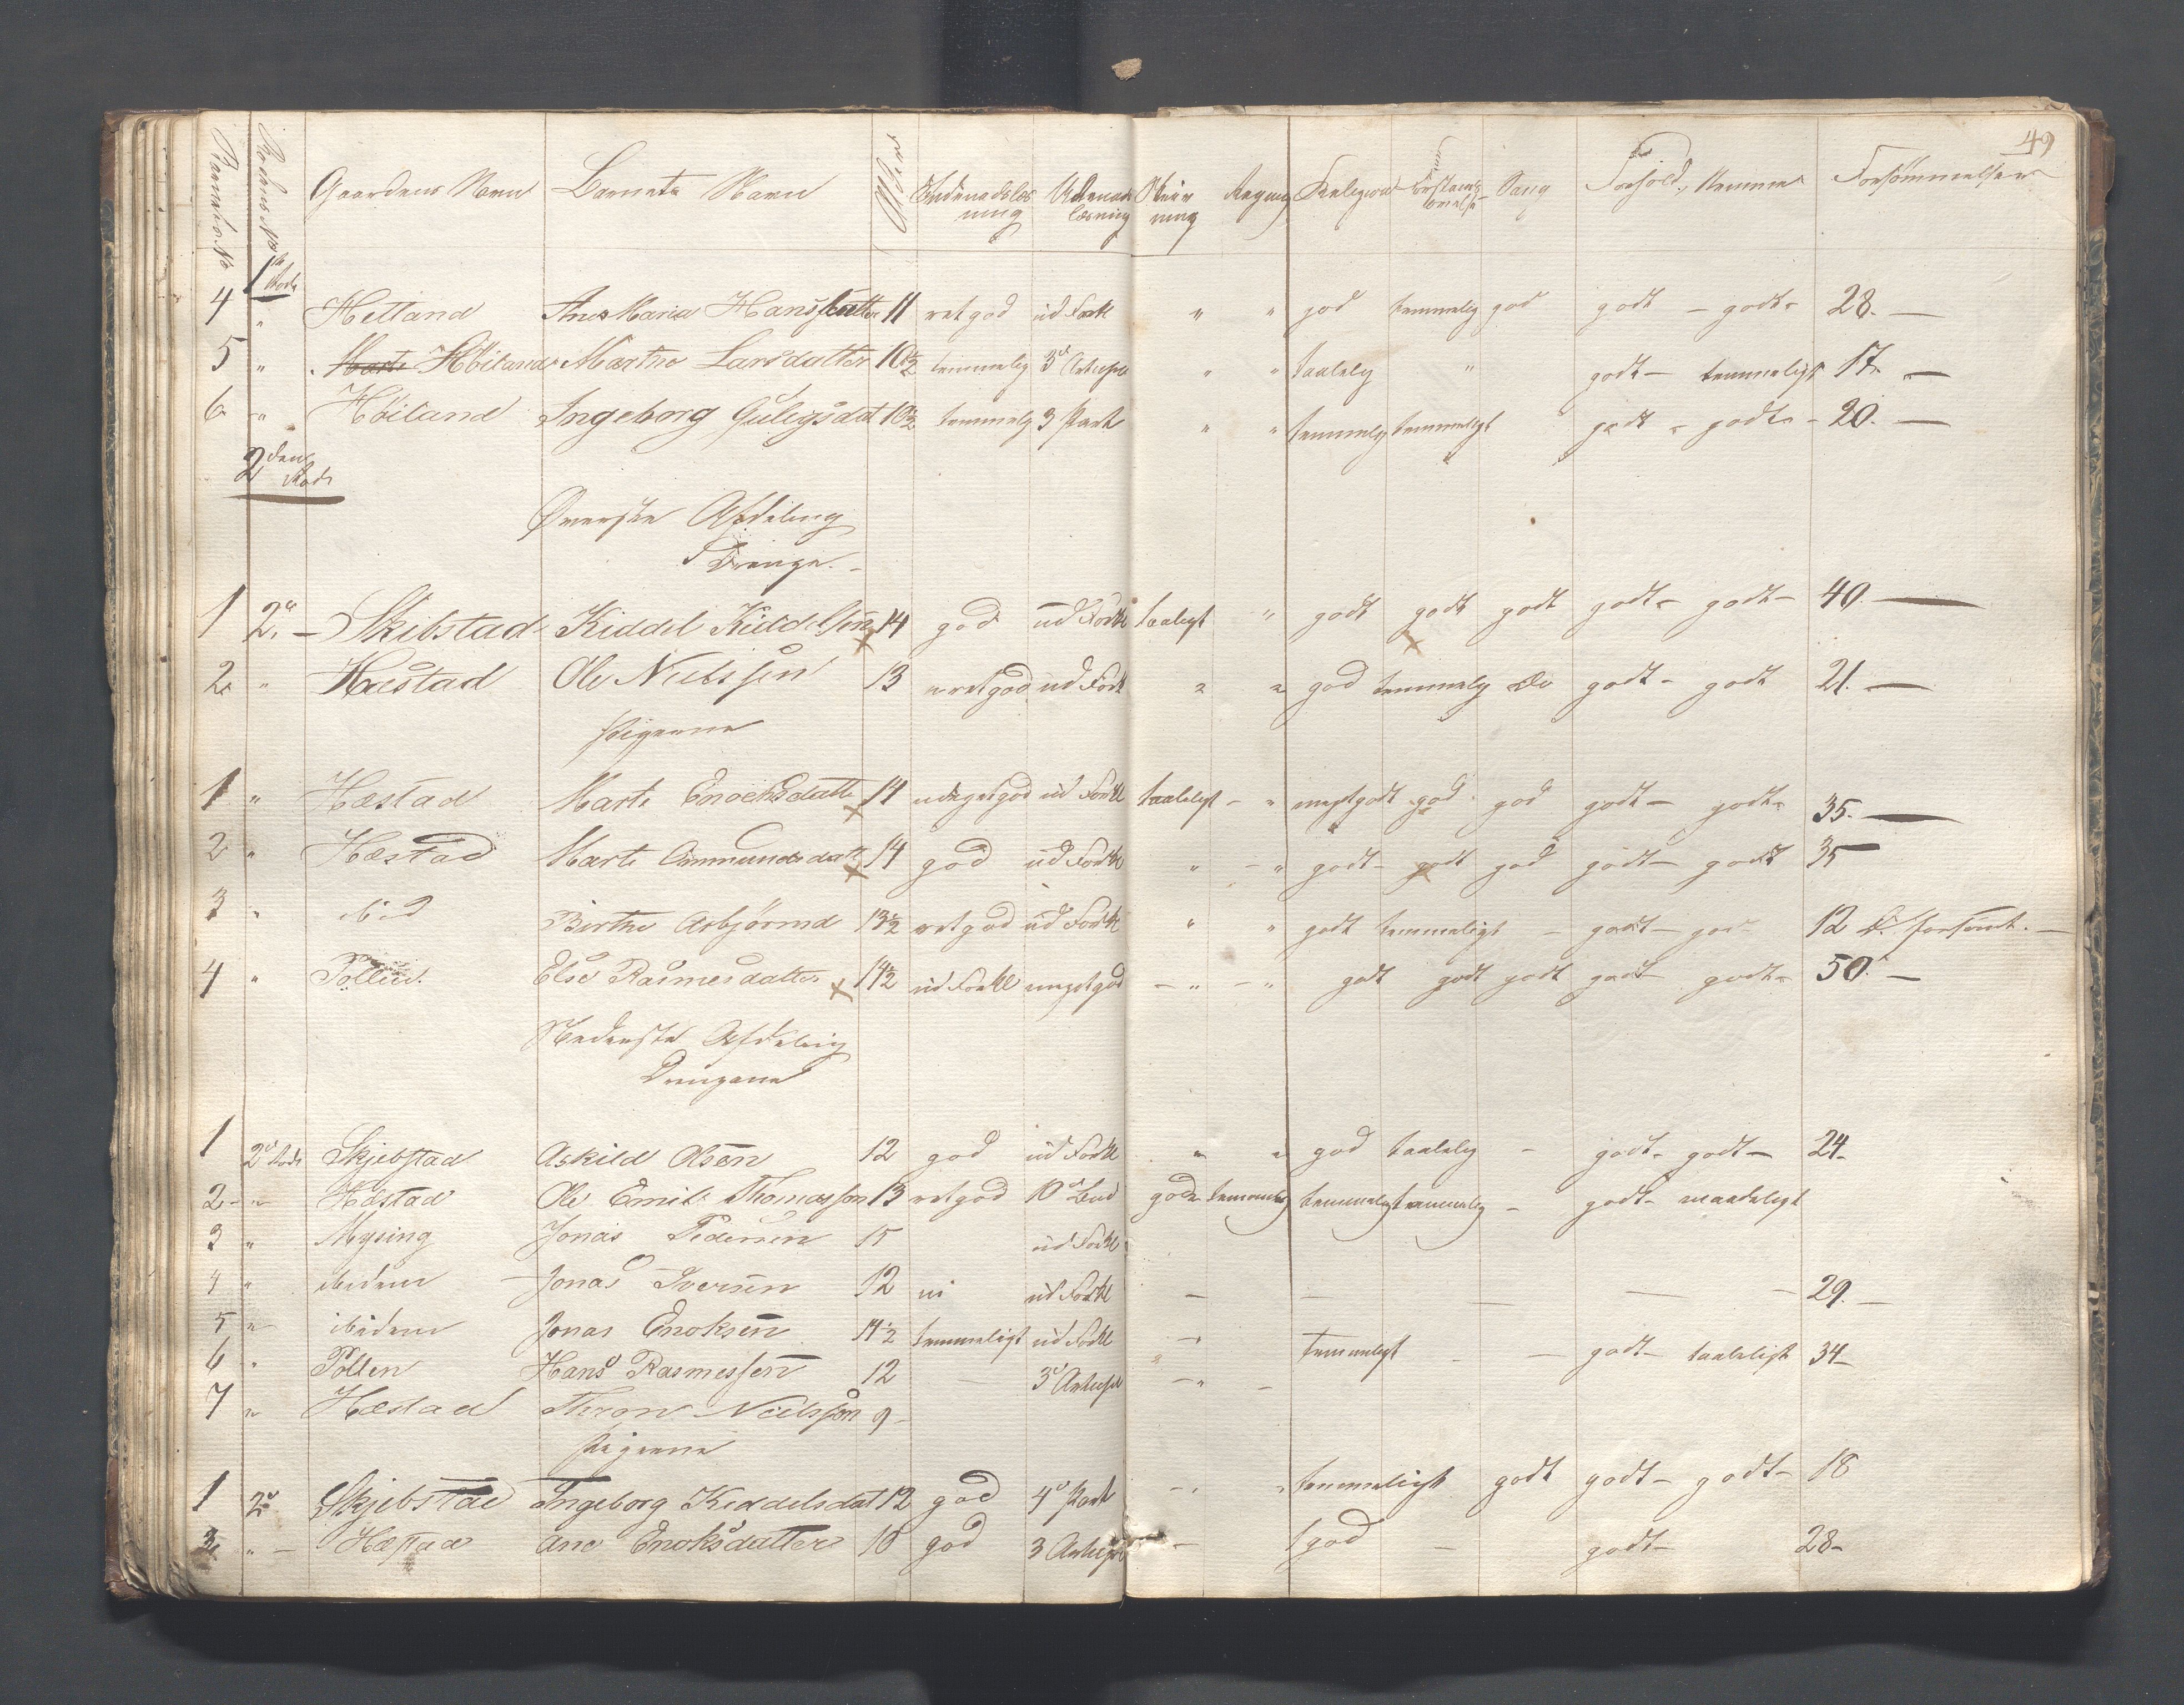 49
Barnets No Rodens No Gaardens Navn Barnets Navn Alder Indenadslæsning Udenadslæsning Skrivning Regning Religion Forstandsøvelse Sang Forhold, Hjemme Forsømmelser
1ste Rode
4 " Hetland Ane Maria Hansdatter 11 ret god ud Forkl " " god temmelig god godt – godt – 28. —
5 " Marte Höiland Marthe Larsdatter 10½ temmelig 3d Artikel " " taalelig " godt – temmeligt 17. —
6 " Höiland Ingeborg Gulegsdat 10½ temmelig 3 Part " " temmelig temmeligt godt – godt – 20. —
2den Rode
Øverste Afdeling
Drenge.
1 2. – Skibstad Kiddel Kiddelsen 14 god ud Forkl taaleligt " godt godt godt godt – godt – 40. —
2. " Hæstad Ole Nielssen 13 ret god ud Forkl " " god temmelig do godt – godt 21. —
Pigerne
1 " Hæstad Marte Enochsdatte 14 meget god ud Forkl taaleligt – " meget godt god god godt – godt – 35. —
2 " Hæstad Marte Ommundsdatt 14 god ud Forkl " – " godt – godt god godt – godt 35
3 " ibid Birthe Asbjörnsd 13½ ret god ud Forkl " " godt temmeligt – godt – 12
4 " Pollen Else Rasmesdatter 14½ ud Forkl meget god – " – " godt godt godt godt godt – 50. –
Nederste Afdeling
Drengene
1 2d Rode Skjebstad Askild Olsen 12 god ud Forkl " " god taalelig – godt – godt – 24 –
2 – " Hæstad Ole Emil Thomassen 13 ret god 10de Bud god temmelig temmeligt temmelig – godt – maadeligt
3 " Mysing Jonas Pedersen 15 ud Forkl
4 " ibidem Jonas Iversen 12 ud Forkl – – – – – 29. –
5 " ibidem Jonas Enoksen 14½ temmeligt ud Forkl – temmeligt – – godt – taaleligt 34 –
6 " Pollen Hans Rasmessen 12 – 3d Artikel – " –
7 " Hæstad Nielsson 9 –
Pigerne
1 2d Skjebstad Ingeborg Keddelsdat 12 god 4d Part – " temmeligt godt godt – godt – 18
3 " – Hæstad Ane Enoksdatter 10 god 3 Artikel – god – godt – 28 –